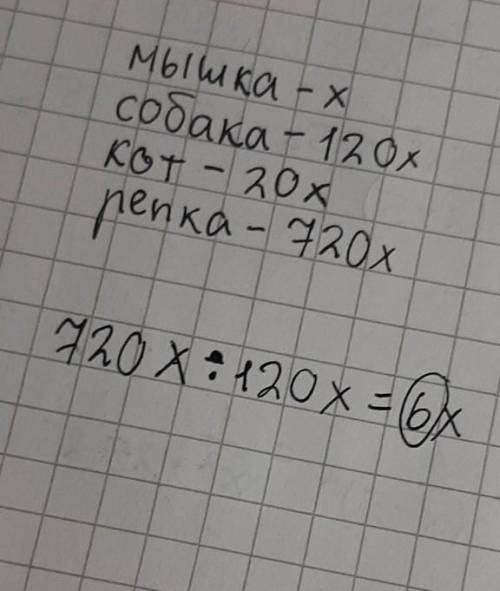 мышка - x
собака - 120x
кот - 20x
репка - 720x
720x : 120x = 6x